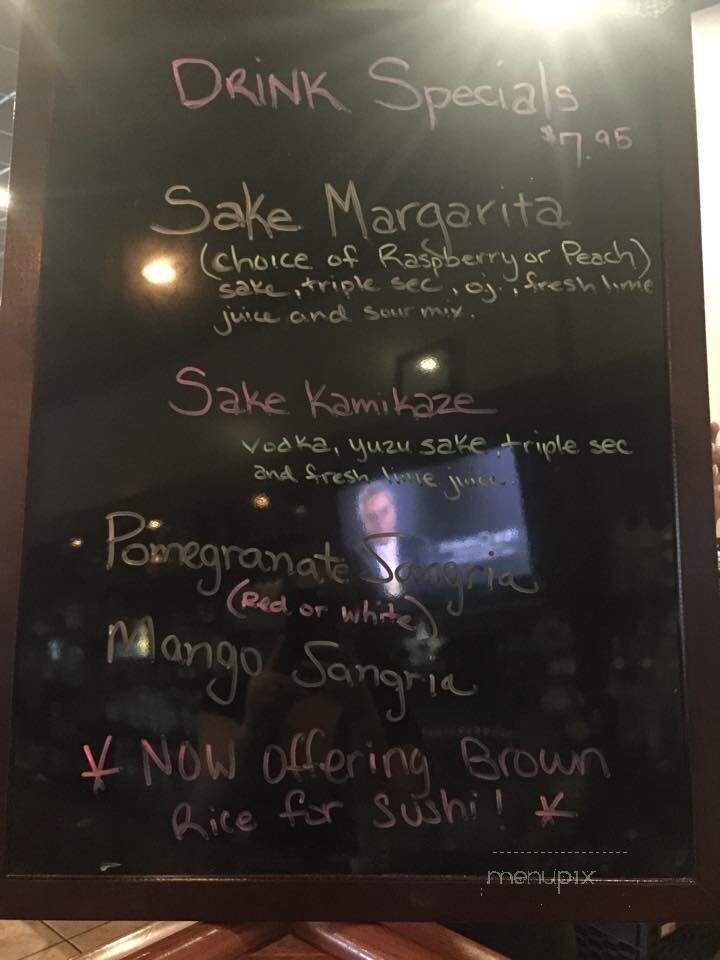 DRINK Specials
$7.95
Sake Margarita
(choice of Raspberry or Peach)
sake, triple sec, oj., fresh lime
juice and sour mix.
Sake Kamikaze
vodka, yuzu sake, triple sec
and fresh lime juice.
Pomegranate Sangria
(Red or white)
Mango Sangria
* NOW offering Brown
Rice for Sushi! *
menupix